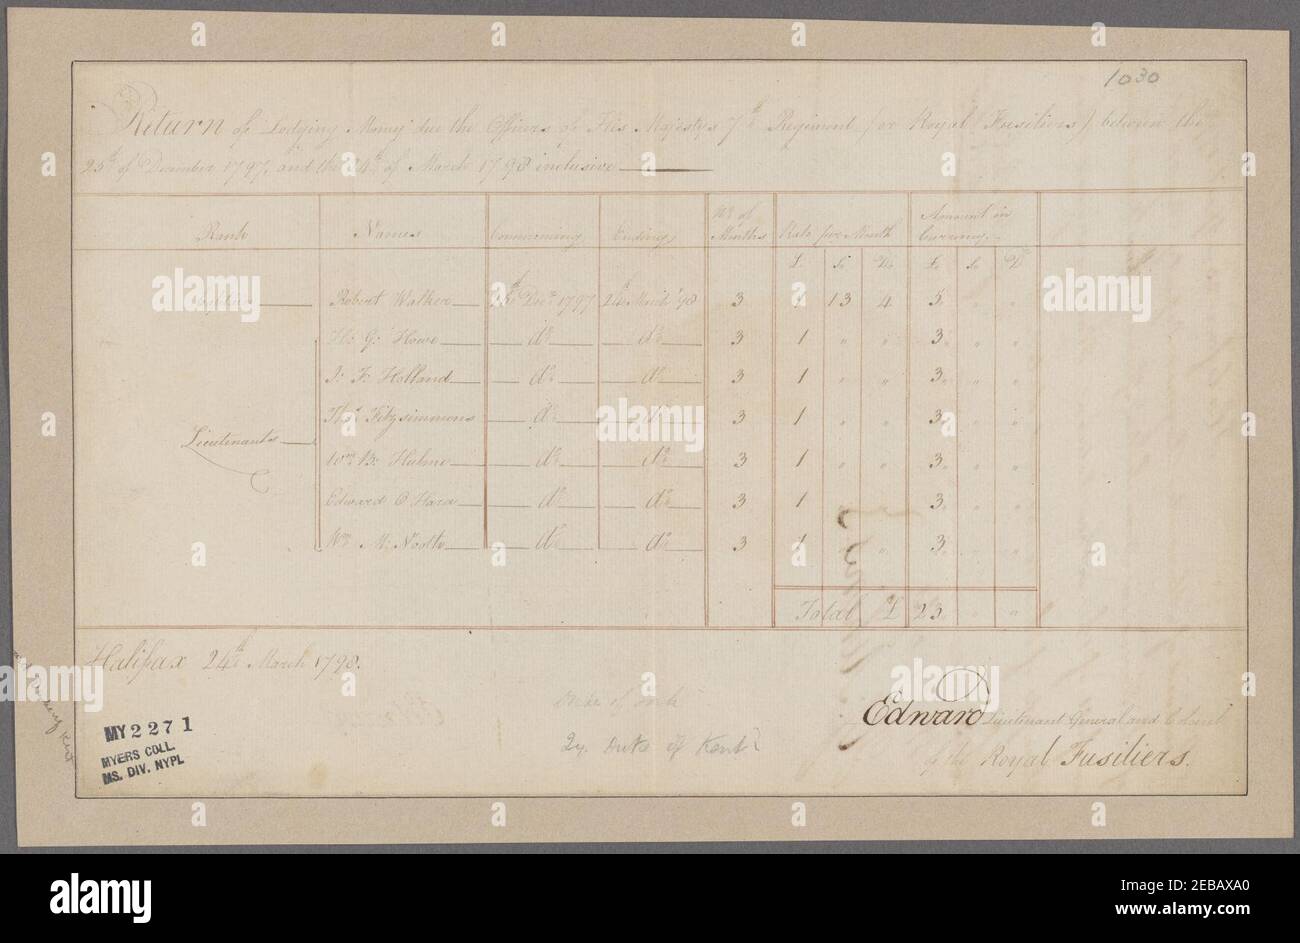 1030
Return of Lodging Money due the Officers of His Majestys 7th Regiment (or Royal Fusiliers) between the
25th of December 1797, and the 24th of March 1798 inclusive
Rank Names Commencing Ending No of Months Rate per Month Amount in Currency
£ S D £ S D
Captain Robert Walker 25th Decr 1797 24th March '98 3 1 13 4 5 " "
G: Howe do do 3 1 " " 3 " "
F: Holland do do 3 1 " " 3 " "
Thos Fitzsimmons do do 3 1 " " 3 " "
Lieutenants
Wm B: Hulme do do 3 1 " " 3 " "
Edward O Hara do do 3 1 " " 3 " "
Wm M: do do 3 1 " " 3 " "
Total £ 23 " "
Halifax 24th March 1798.
Edward Lieutenant General and Colonel
of the Royal Fusiliers.
Duke of
Qy. Duke of Kent?
MY 2271
MYERS COLL.
MS. DIV. NYPL
alamy
Image ID: 2EBAXA0
www.alamy.com